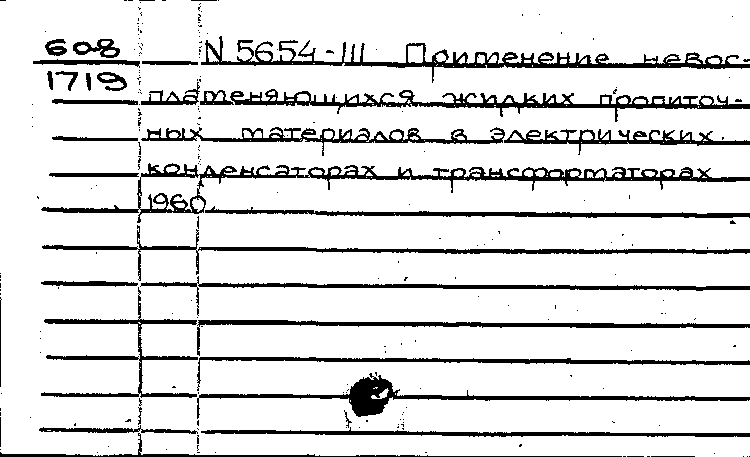 608 N 5654-III Применение невос-
1719 пламеняющихся жидких пропиточ-
ных материалов в электрических
конденсаторах и трансформаторах
1960.